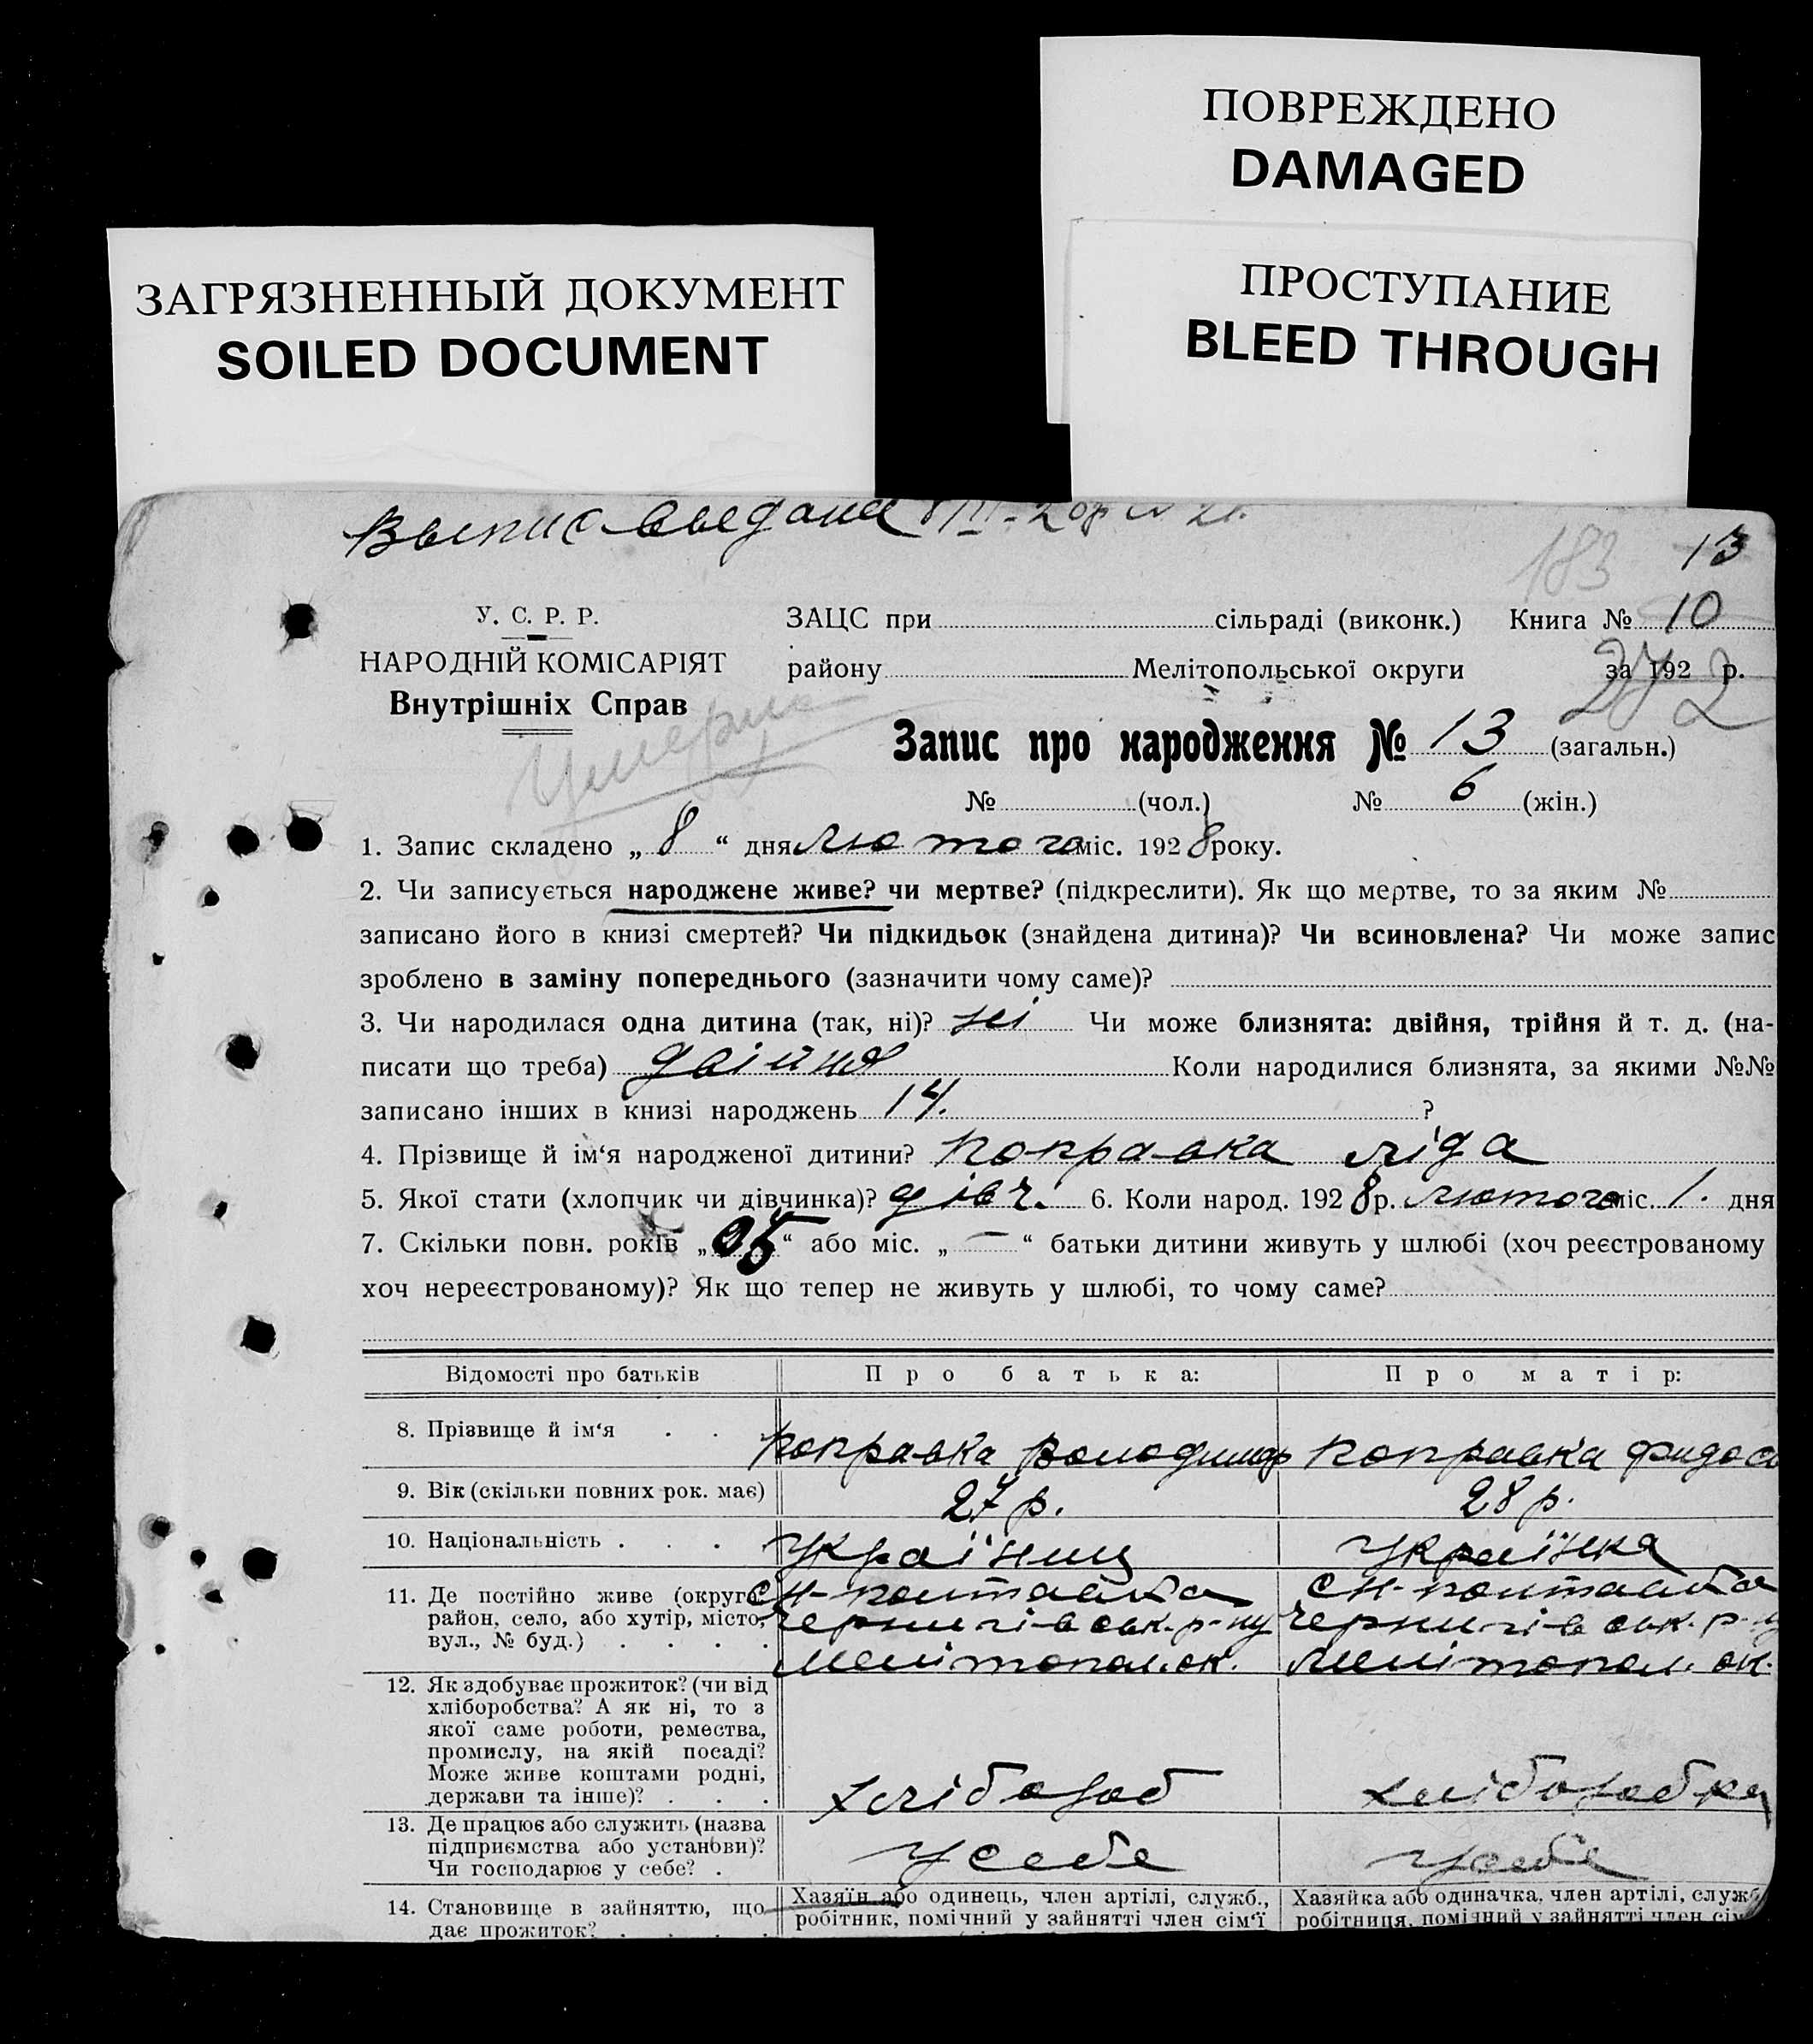 ПОВРЕЖДЕНО
DAMAGED
ЗАГРЯЗНЕННЫЙ ДОКУМЕНТ
SOILED DOCUMENT
ПРОСТУПАНИЕ
BLEED THROUGH
Выпис выдана
183 13
У. С. Р. Р.
НАРОДНІЙ КОМІСАРІЯТ
Внутрішніх Справ
ЗАЦС при сільраді (виконк.) Книга № 10
району Мелітопольської округи за 192 р.
272
Умерла
Запис про народження № 13 (загальн.)
№ (чол.) № 6 (жін.)
1. Запис складено „ 8 “ дня лютого міс. 1928 року.
2. Чи записується народжене живе? чи мертве? (підкреслити). Як що мертве, то за яким №
записано його в книзі смертей? Чи підкидьок (знайдена дитина)? Чи всиновлена? Чи може запис
зроблено в заміну попереднього (зазначити чому саме)?
3. Чи народилася одна дитина (так, ні)? ні Чи може близнята: двійня, трійня й т. д. (на-
писати що треба) двійня Коли народилися близнята, за якими №№
записано інших в книзі народжень 14. ?
4. Прізвище й ім‘я народженої дитини? Поправка Ліда
5. Якої стати (хлопчик чи дівчинка)? дівч. 6. Коли народ. 1928 р. лютого міс. 1. дня
7. Скільки повн. років „ “ або міс. „ — “ батьки дитини живуть у шлюбі (хоч реєстрованому
хоч нереєстрованому)? Як що тепер не живуть у шлюбі, то чому саме?
Відомості про батьків Про батька: Про матір:
8. Прізвище й ім‘я . . Поправка Володимир Поправка Фидось
9. Вік (скільки повних рок. має) 27 р. 28 р.
10. Національність . . . . Українец Українка
11. Де постійно живе (округа, сн-Полтавка сн-Полтавка
район, село, або хутір, місто, Чернигівськ. р-ну Чернигівськ. р-ну
вул., № буд.) . . . . Мелітопол. ок. Мелітопол. ок.
12. Як здобуває прожиток? (чи від
хліборобства? А як ні, то з
якої саме роботи, ремества,
промислу, на якій посаді?
Може живе коштами родні,
держави та інше)? . . . хлібороб хліборобка
13. Де працює або служить (назва
підприємства або установи)?
Чи господарює у себе? . У себе У себе
14. Становище в зайняттю, що Хазяїн або одинець, член артілі, служб., Хазяйка або одиначка, член артілі, служб
дає прожиток? . . . . робітник, помічний у зайнятті член сім‘ї робітниця, помічний у зайнятті член сім